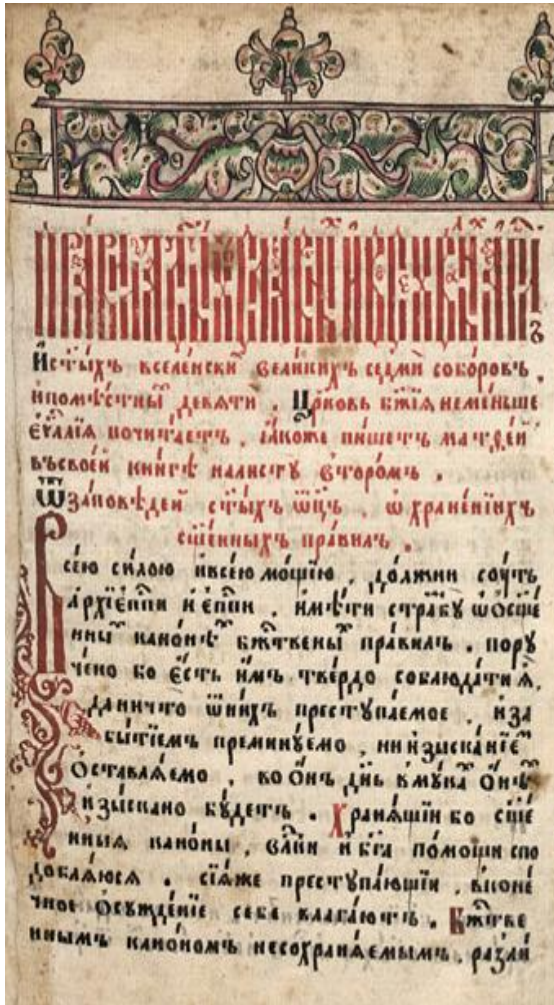 И ст҃ы́хъ вселенски́х вели́кихъ седми́ собо́ровъ,
и помѣ́стныⷯ девяти. Цр҃ковь бж҃їѧ неме́ньше
еѵⷢ҇лїѧ почита́етъ, ꙗ́коже пи́шетъ матѳе́й
въсвое́й кни́гѣ налистꙋ̀ второ́мъ.
Ѿ за́повѣдей ст҃ы́хъ ѻ҆ц҃ъ, ѡ҆ хране́нїихъ
сщ҃е́нныхъ пра́вилъ.
Все́ю си́лою и҆ все́ю мо́щїю, до́лжни сꙋ́ть
а҆рхїеп҃пи и҆ е҆п҃пи, и҆мѣ́ти стра́жбꙋ ѡ҆ сщ҃е́
нныⷯ кано́нѣⷯ бж҃твеныⷯ пра́вилъ. порꙋ
че́но бо є҆́сть и҆́мъ тве́рдо соблюда́ти ѧ҆̀,
да ничто̀ ѿ ни́хъ престꙋпа́емое, и҆ за
бы́тїемъ преминꙋ́емо, ни и҆зыска́нїеⷨ
ѻ҆ставлѧ́емо, во ѻ҆́нъ дн҃ь в мꙋ́каⷯ ѻ҆́нѣⷯ
и҆зы́скано бꙋ́детъ. Хранѧ́щїи бо сщ҃е́
нныѧ кано́ны, вл҃ки и҆ бг҃а по́мощи спо
доблѧ́юсѧ. сїѧ́же престꙋпа́ющїи, в коне́
чное ѻ҆сꙋжде́нїе себѐ влага́ютъ. Бж҃тве
ннымъ кано́номъ несохранѧ́емымъ, разли